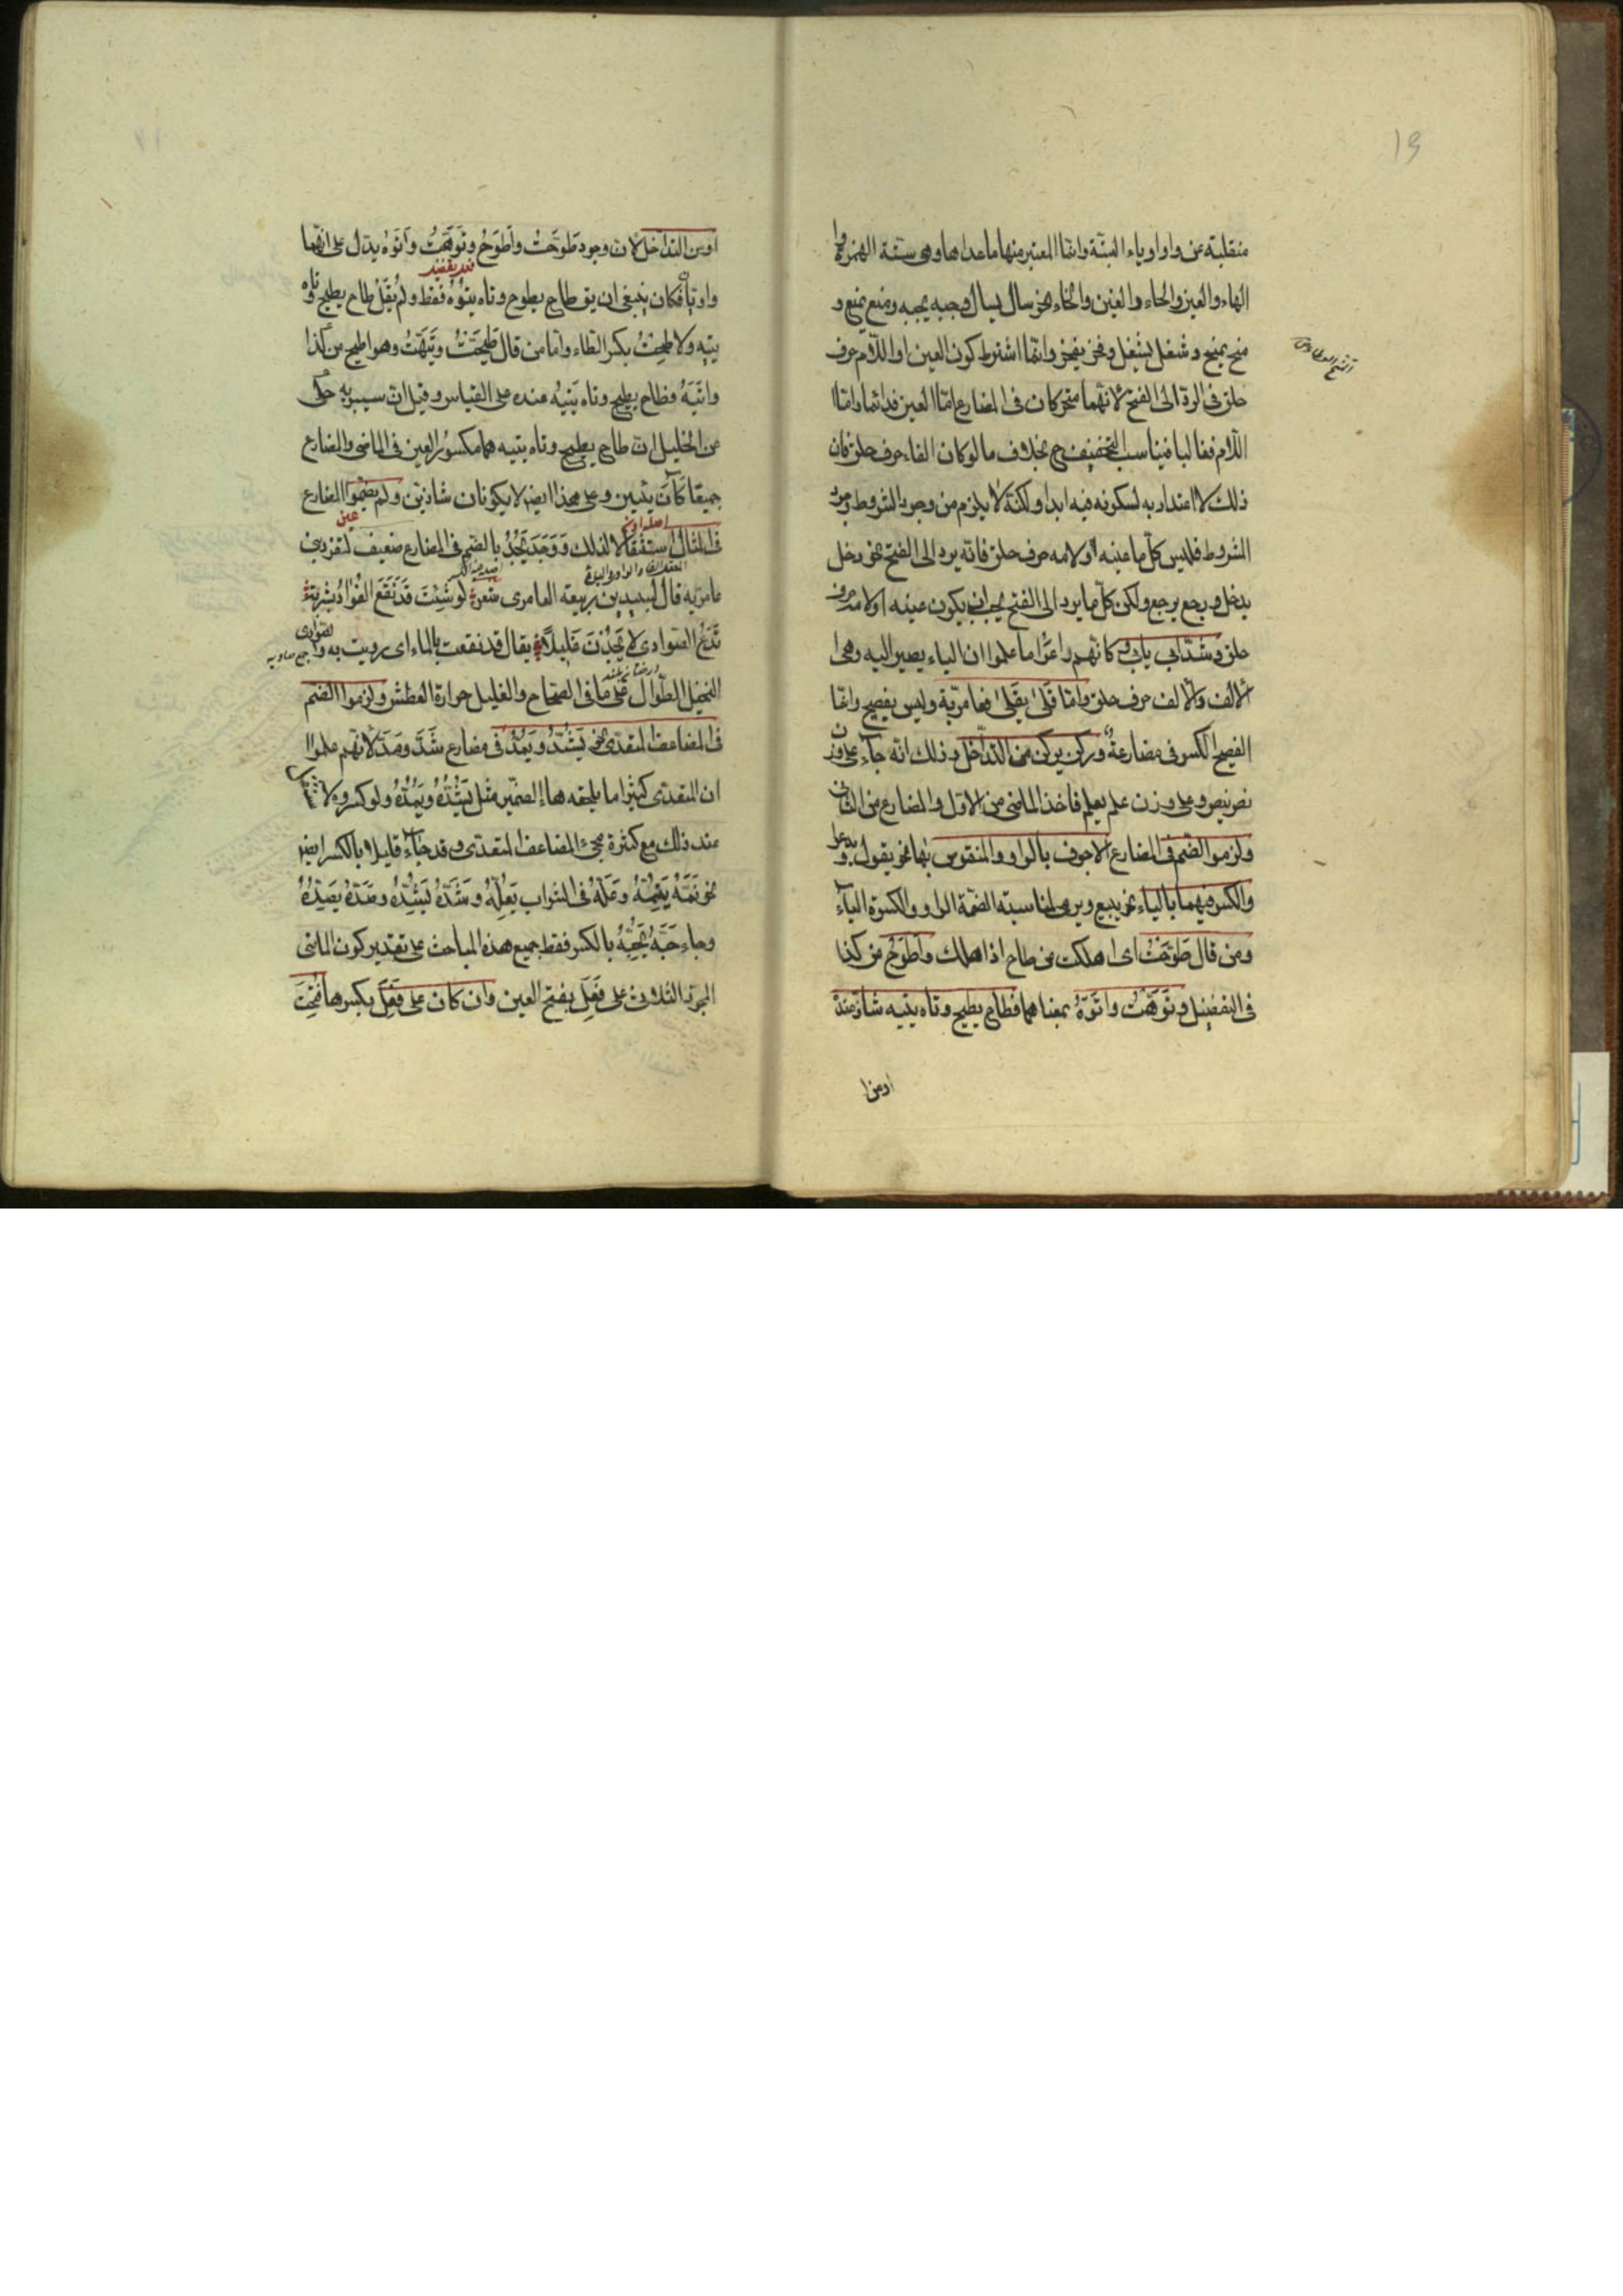 19
منقلبة عن واو او ياء البتة وانما المعتبر منها ما عداها وهى ستة الهمزة وا
الهاء والعين والحاء والغين والخاء نحو سأل يسأل وجبه يجبه ومنع يمنع و
منح يمنح وشغل يشغل وفخر يفخر وانما اشترط كون العين او اللام حرف
حلق فى الرد الى الفتح لانهما متحركان فى المضارع اما العين فدائما واما
اللام فغالبا فيناسب التخفيف ح بخلاف ما لو كان الفاء حرف حلق فان
ذلك لا اعتداد به لسكونه فيه ابدا ولكنه لا يلزم من وجود الشروط وجود
الشروط فليس كل ما عينه او لامه حرف حلق فانه يرد الى الفتح نحو دخل
يدخل ورجع يرجع ولكن كل ما يرد الى الفتح يجب ان يكون عينه او لامه حرف
حلق وشذ ابى يابى كانهم راعوا ما علموا ان الياء يصير اليه وهى ا
الالف والالف حرف حلق واما قلى يقلى فعامرية وليس بفصيح وانما
الفصيح الكسر فى مضارعه وركن يركن من التداخل وذلك انه جاء على وزن
نصر ينصر وعلى وزن علم يعلم فاخذ الماضى من الاول والمضارع من الثانى
ولزموا الضم فى المضارع الاجوف بالواو والمنقوص بها نحو يقول ويدعو
والكسر فيهما بالياء نحو يبيع ويرمى لمناسبة الضمة الواو والكسرة الياء
ومن قال طوّحت اى اهلكت من طاح اذا هلك واطوح من كذا
فى التفضيل وتوّهت واتوه بمعناهما فطاح يطيح وتاه يتيه شاذ عنده
او من ا
او من التداخل لان وجود طوّحت واطوح وتوّهت واتوه يدل على انهما
واويّان فكان ينبغى ان يق طاح يطوح وتاه يتوه فقط ولم يقل طاح يطيح وتاه
يتيه ولا طحت بكسر الطاء واما من قال طيّحت وتيّهت وهو اطيح من كذا
واتيه فطاح يطيح وتاه يتيه عنده على القياس وقيل ان سيبويه حكى
عن الخليل ان طاح يطيح وتاه يتيه هما مكسور العين فى الماضى والمضارع
جميعا وعلى هذا ايضا لا يكونان شاذين ولم يضموا المضارع
فى المثال استثقالا لذلك ووجد يجد بالضم فى المضارع ضعيف لتفرد بنى
عامر به قال لبيد بن ربيعة العامرى شعر لو شئت قد نقع الفؤاد بشربة
تدع الصوادى لا يجدن غليلا يقال قد نقعت بالماء اى رويت به والصوادى
النخيل الطوال على ما فى الصحاح والغليل حرارة العطش ولزموا الضم
فى المضاعف المتعدى نحو يشدّ ويمدّ فى مضارع شدّ ومدّ لانهم علموا
ان المتعدى كثيرا ما يلحقه هاء الضمير مثل يشدّه ويمدّه ولو كسروه
عند ذلك مع كثرة مجىء المضاعف المتعدى وقد جاء قليلا بالكسر ايضا
نحو نمّه ينمّه وعلّه فى الشراب يعلّه وشدّه يشدّه
وجاء حبّه يحبّه بالكسر فقط جميع هذه المباحث على تقدير كون الماضى
المجرد الثلاثى على فعل بفتح العين وان كان على فعل بكسرها فتحت